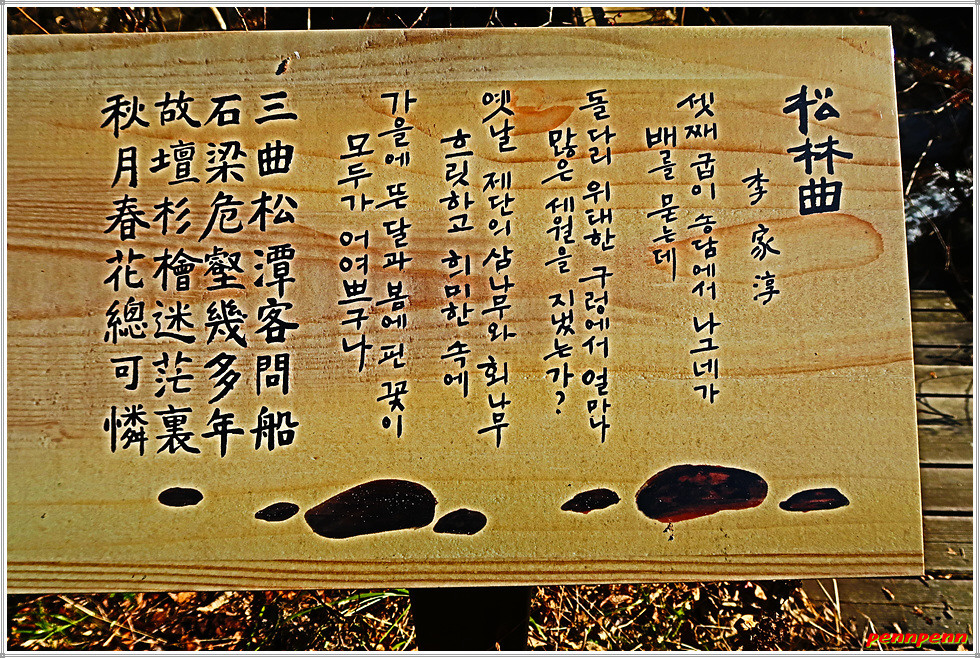 松林曲
李家淳
셋째 굽이 송담에서 나그네가
배를 묻는데
돌다리 위태한 구렁에서 얼마나
많은 세월을 지냈는가?
옛날 제단의 삼나무와 회나무
흐릿하고 희미한 속에
가을에 뜬 달과 봄에 핀 꽃이
모두가 어여쁘구나
三曲松潭客問船
石梁危壑幾多年
故壇杉檜迷茫裏
秋月春花總可憐
pennpenn